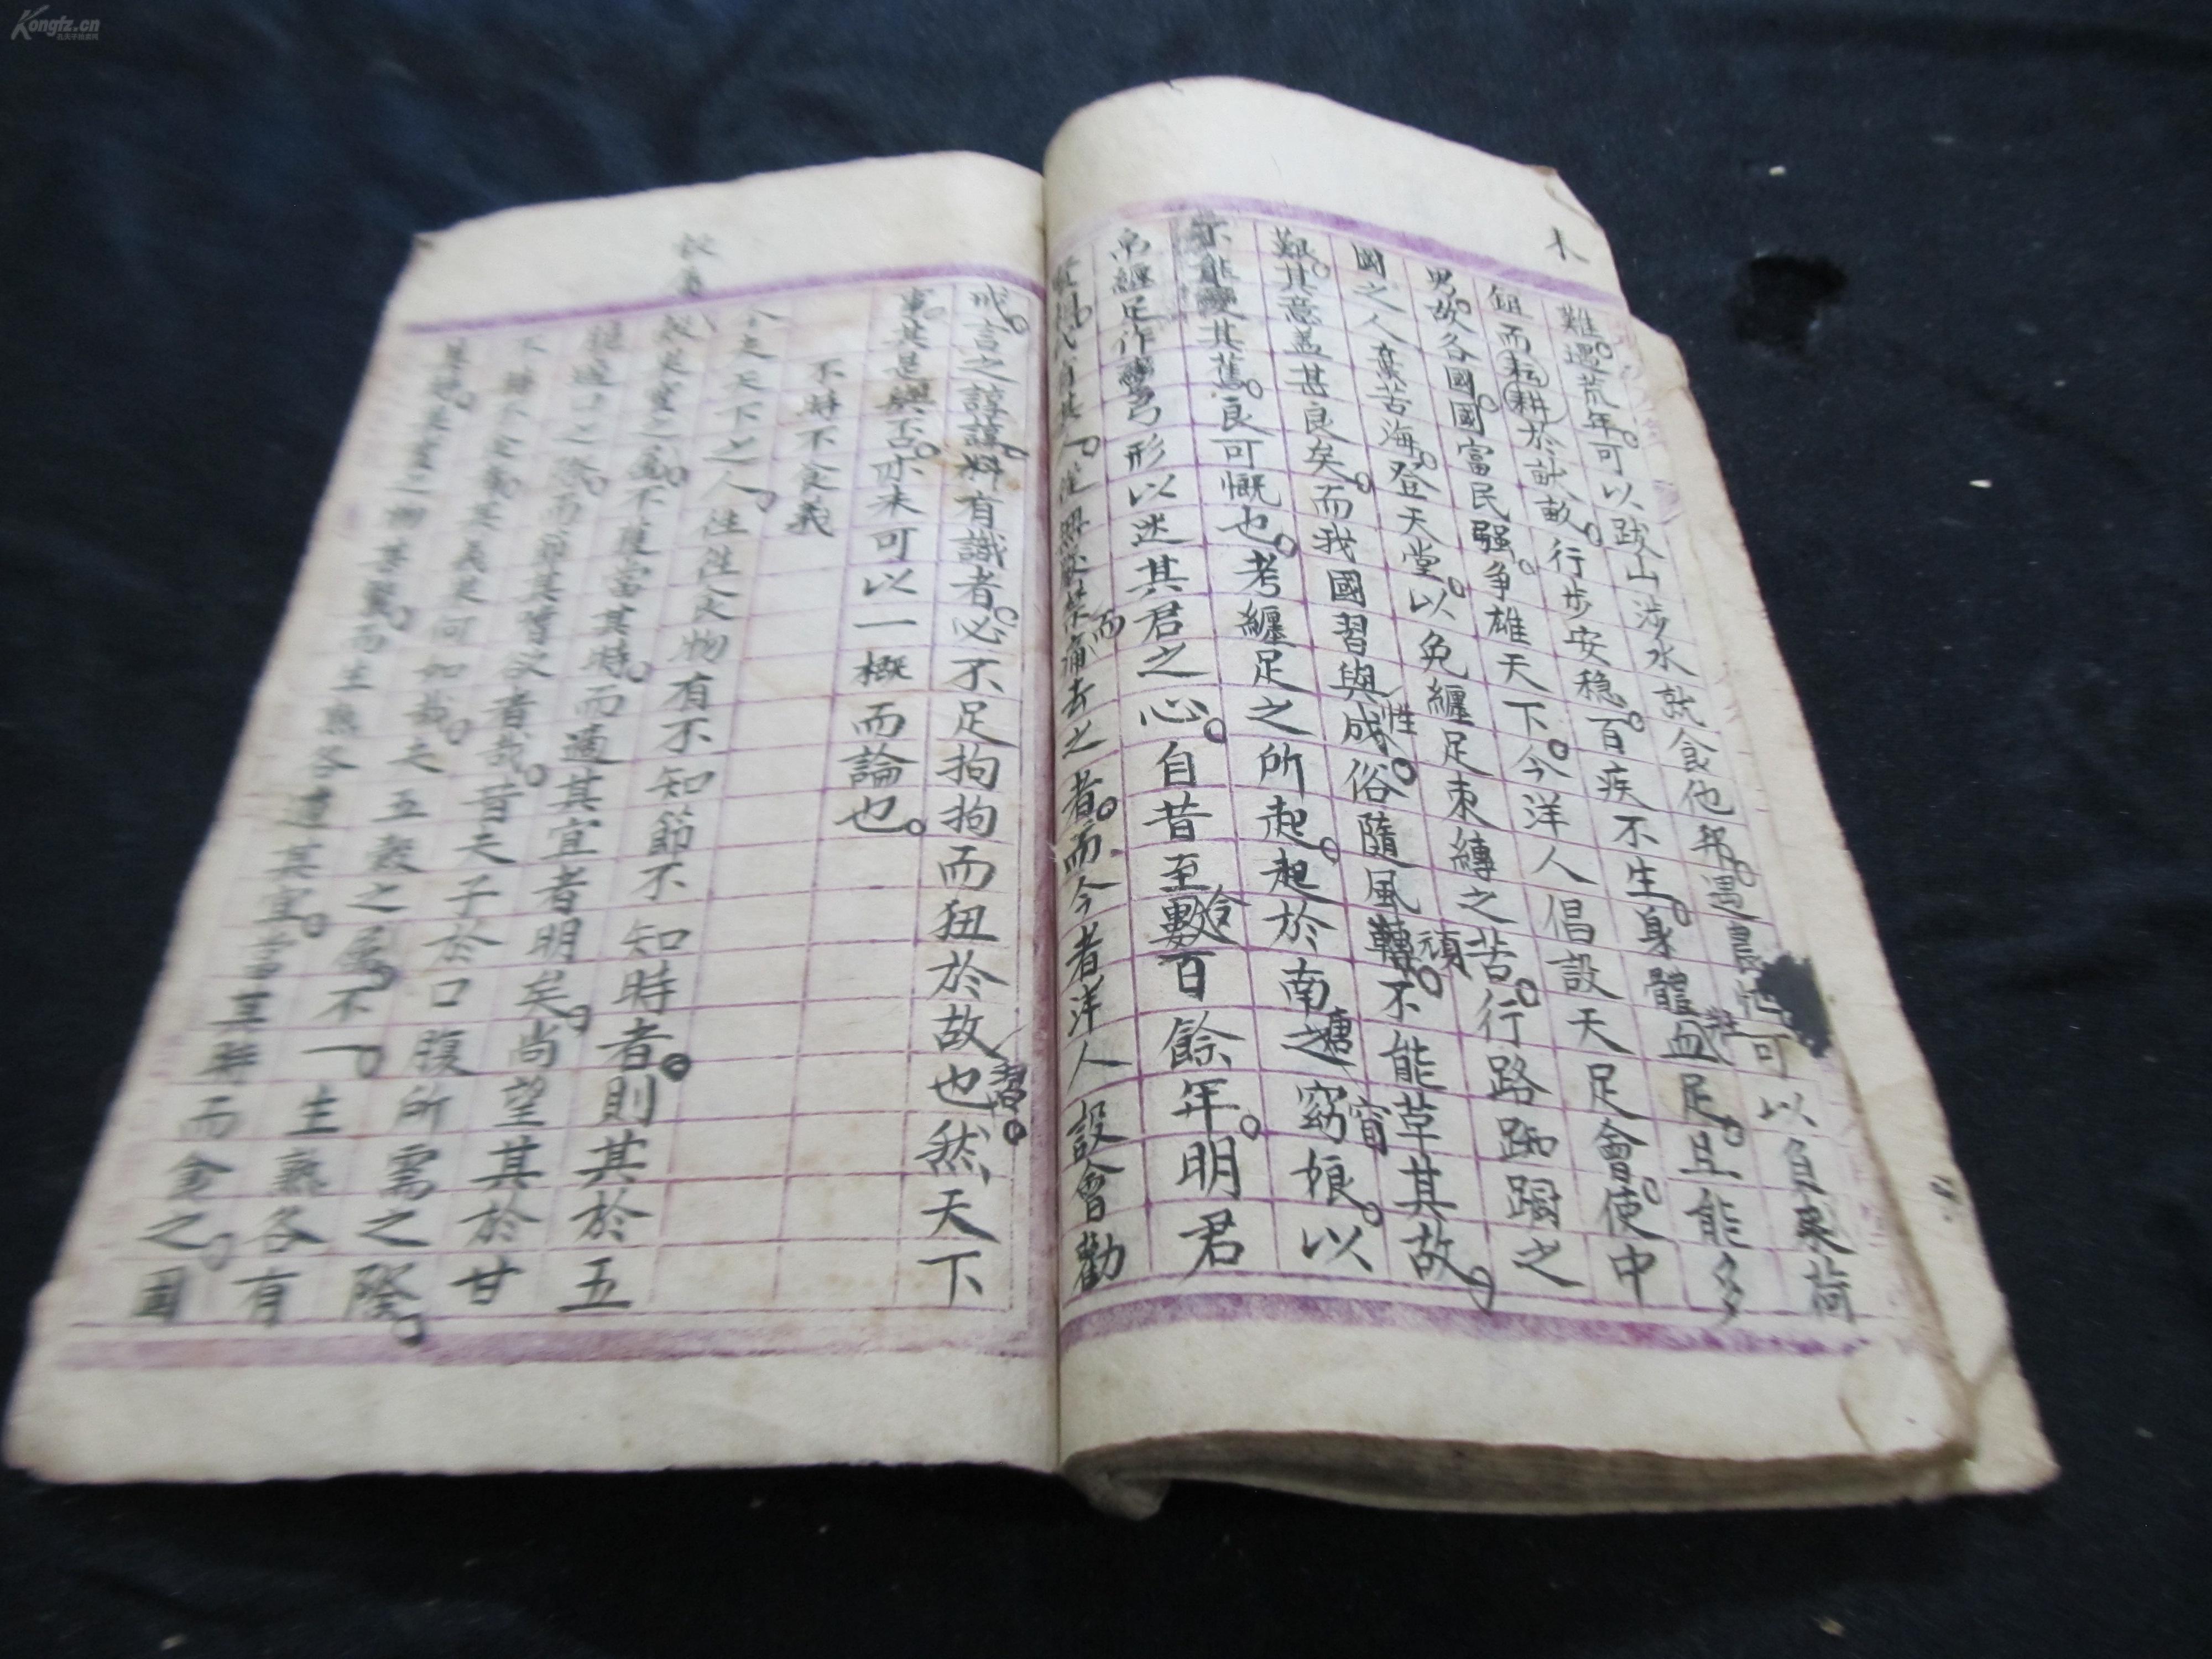 Kongfz.cn
木
難遇荒年可以跋山涉水就食他邦遇農忙可以負耒荷
鉏而耘耕於試畝行步安穩百疾不生身體血足且能多
男故各國國富民强争雄天下今洋人倡設天足會使中
國之人棄苦海登天堂以免纏足束縛之苦行路踟蹰之
艱其意盖甚良矣而我國習與性成俗隨風轉頑不能草其故
能變其舊良可慨也考纏足之所起起於南唐之窈窅娘以
帛纏足作彎弓形以迷其君之心自昔至今數百餘年明君
而去之者而今者洋人設會勸
戒言之諄諄料有識者必不足拘拘而狃於故習也然天下
事其是與否亦未可以一概而論也
不時不食義
今夫天下之人往往食物有不知節不知時者則其於五
穀果實之屬不復當其時而適其宜者明矣尚望其於甘
口之際而節其嗜欲者哉昔夫子於口腹所需之際
不時不食其義是何如哉夫五穀之屬不一生熟各有
其時果實之物甚繁而生熟各遭其宜當其時而食之固